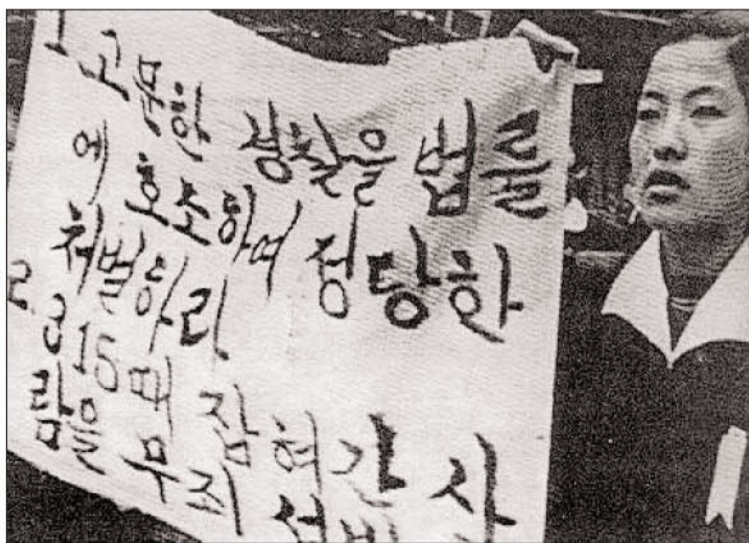 1 고문한 경찰을 법률
에 호소하여 정당한
처벌하라
2. 3 15때 잡혀간 사
람을 무죄 석방